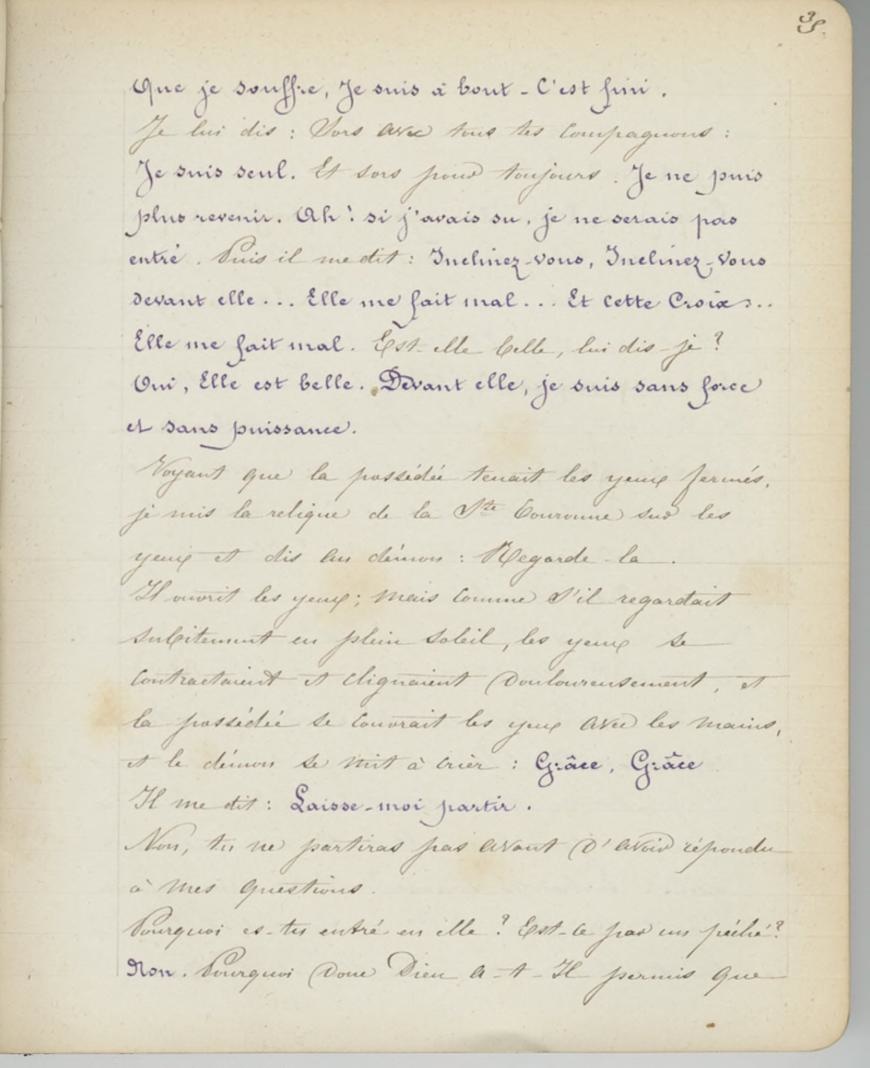 35.
Que je souffre, Je suis à bout - C'est fini.
Je lui dis : Sors avec tous tes compagnons :
Je suis seul. Et sors pour toujours. Je ne puis
plus revenir. Ah ! si j'avais su, je ne serais pas
entré. Puis il me dit : Inclinez-vous, Inclinez-vous
devant elle... Elle me fait mal... Et cette Croix...
Elle me fait mal. Est-elle belle, lui dis-je ?
Oui, Elle est belle. Devant elle, je suis sans force
et sans puissance.
Voyant que la possédée tenait les yeux fermés,
je mis la relique de la Ste Couronne sur les
yeux et dis au démon : Regarde-la.
Il ouvrit les yeux ; mais comme s'il regardait
subitement en plein soleil, les yeux se
contractaient et clignaient douloureusement, et
la possédée se couvrait les yeux avec les mains,
et le démon se mit à crier : Grâce, Grâce
Il me dit : Laisse-moi partir.
Non, tu ne partiras pas avant d'avoir répondu
à mes questions.
Pourquoi es-tu entré en elle ? Est-ce par un péché ?
Non. Pourquoi donc Dieu a-t-Il permis que